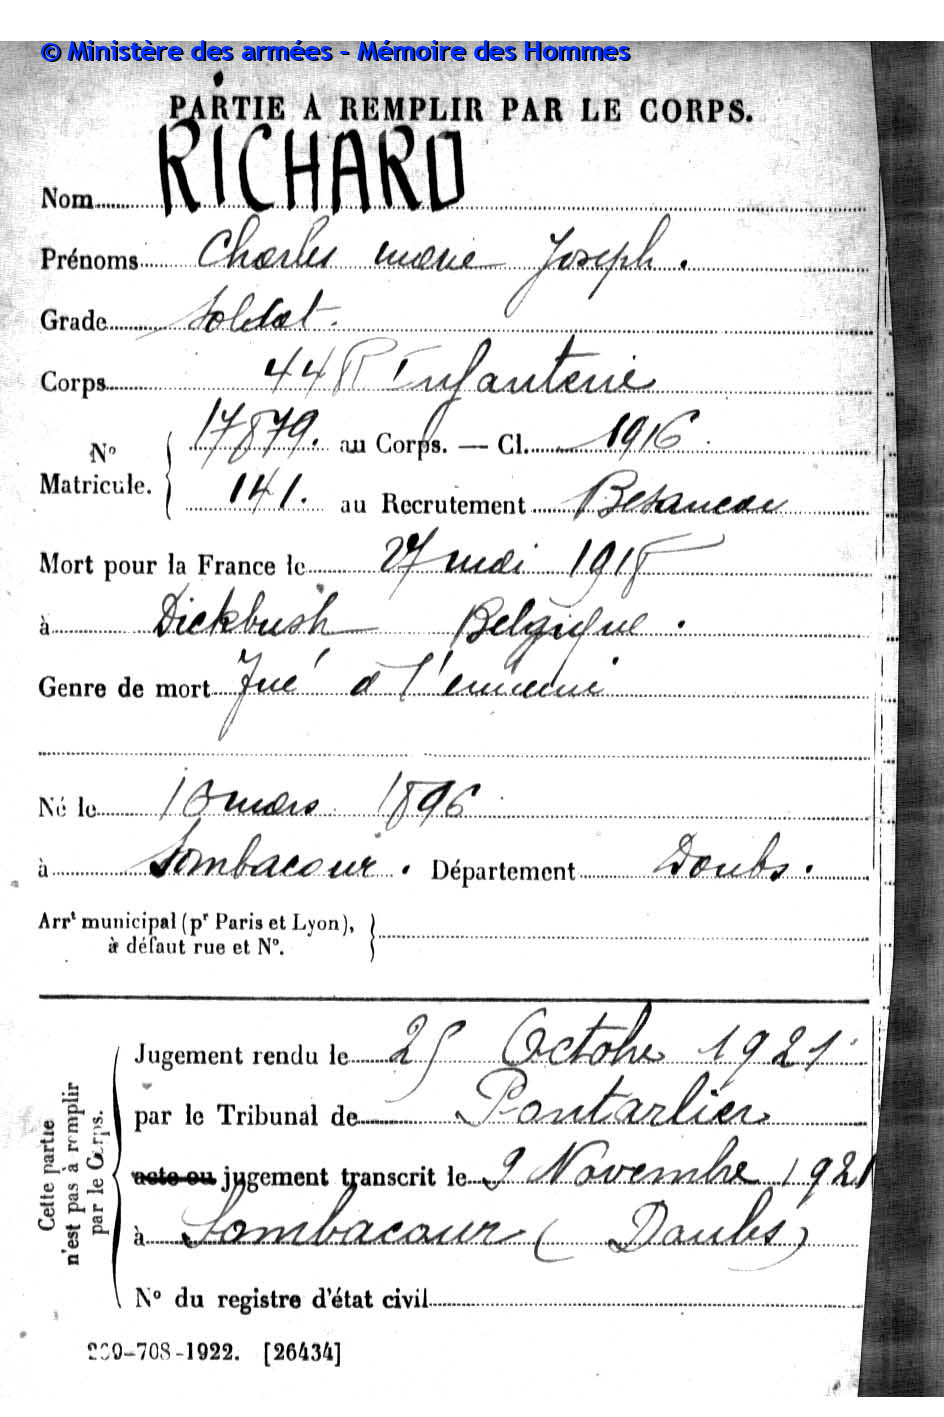 © Ministère des armées - Mémoire des Hommes
PARTIE A REMPLIR PAR LE CORPS.
Nom RICHARD
Prénoms Charles Marie Joseph.
Grade Soldat.
Corps 44 R Infanterie
N° Matricule. 17879. au Corps. — Cl. 1916.
141. au Recrutement Besancon
Mort pour la France le 27 mai 1918
à Dickbush Belgique.
Genre de mort Tué à l'ennemi
Né le 10 mars 1896
à Sombacour. Département Doubs.
Arrt municipal (pr Paris et Lyon),
à défaut rue et N°.
Cette partie
n'est pas à remplir
par le Corps.
Jugement rendu le 25 Octobre 1921
par le Tribunal de Pontarlier
acte ou jugement transcrit le 9 Novembre 1921
à Sombacour (Doubs)
N° du registre d'état civil
-708-1922. [26434]